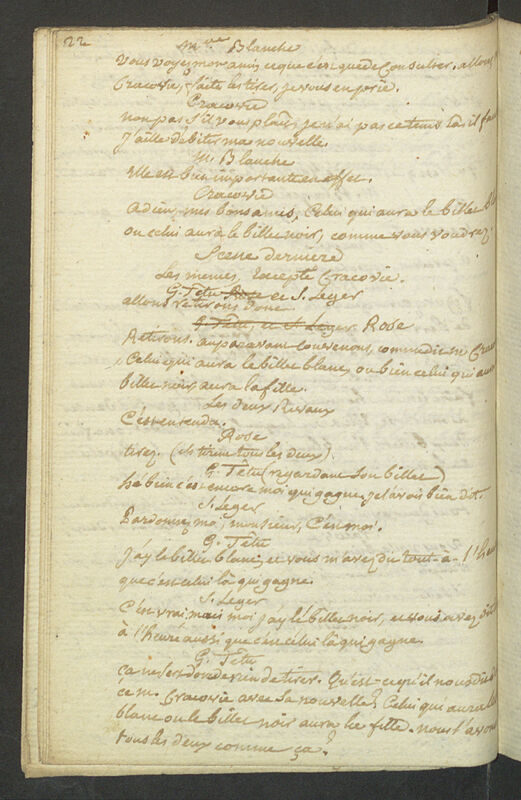 22
M.me Blanche
Vous voyez mon ami, ce que c'est que de consulter. allons,
Cracovie, faites les tirer, je vous en prie.
Cracovie
non pas s'il vous plait, je n'ai pas ce tems là, il fau
J'aille débiter ma nouvelle.
M. Blanche
Elle est bien importante en effet.
Cracovie
adieu, mes bons amis, Celui qui aura le billet
ou celui aura le billet noir, comme vous voudrez.
Scene derniere
Les memes, Excepté Cracovie.
G. Têtu Rose et S. Leger
allons retirons donc
G. Têtu, et S. Leger. Rose
Retirons. auparavant convenons, comme dit M. Craco
Celui qui aura le billet blanc, ou bien celui qui aur
billet noir aura la fille.
Les deux Rivaux
C'est entendu.
Rose
tirez. (ils tirent tous les deux).
G. Têtu (regardant son billet)
hé bien c'est encore moi qui gagne. je l'avois bien dit.
S. Leger
Pardonnez moi, monsieur, C'est moi.
G. Têtu
J'ay le billet blanc, et vous m'avez dit tout-à-l'heu
que c'est celui là qui gagne.
S. Leger
C'est vrai, mais moi j'ay le billet noir, et vous avez dit
à l'heure aussi que c'est celui là qui gagne.
G. Têtu
ça ne sert donc de rien de tirer. Qu'est-ce qu'il nous dit d
ce M. Cracovie avec sa nouvelle? Celui qui aura le
blanc ou le billet noir aura la fille. nous l'avon
tous les deux comme ça.